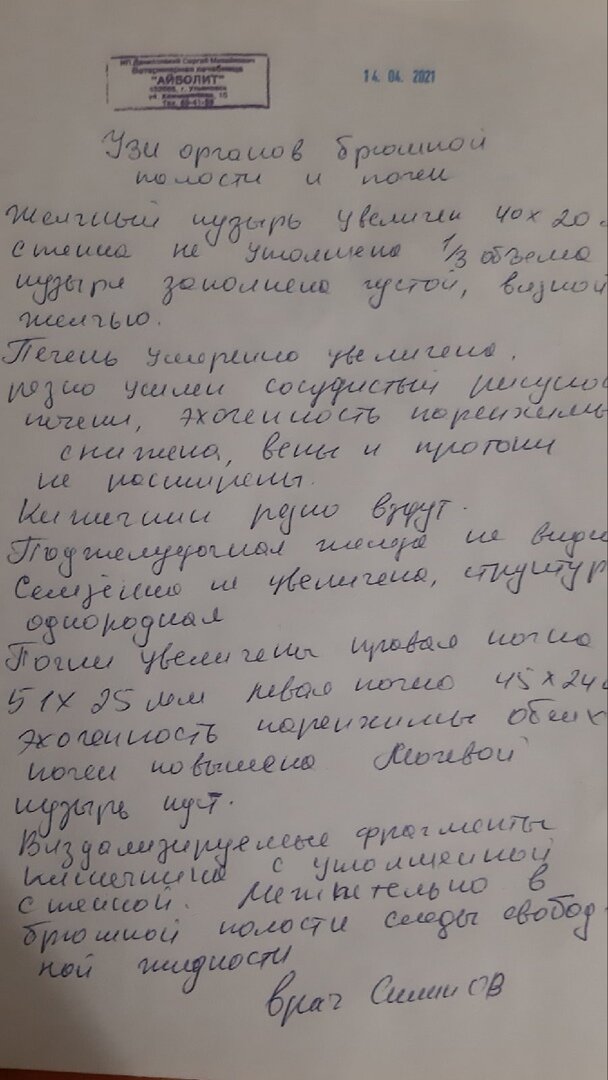 ИП Данилевский Сергей Михайлович
Ветеринарная лечебница
"АЙВОЛИТ"
г. Ульяновск
14. 04. 2021
Узи органов брюшной
полости и почек
Желчный пузырь увеличен 40х20
стенка не утолщена 1/3 объема
пузыря заполнена густой, вязкой
желчью.
Печень умеренно увеличена.
резко усилен сосудистый рисунок
печени, эхогенность паренхимы
снижена, вены и протоки
не расширены.
Кишечник резко вздут.
Поджелудочная железа не видна
Селезёнка не увеличена, структур
однородная
Почки увеличены правая почка
51х25 мм левая почка 45х24
эхогенность паренхимы обеих
почек повышена Мочевой
пузырь пуст.
Виздализируемые фрагменты
кишечника с утолщенной
стенкой. в
брюшной полости следы свобод-
ной жидкости
врач